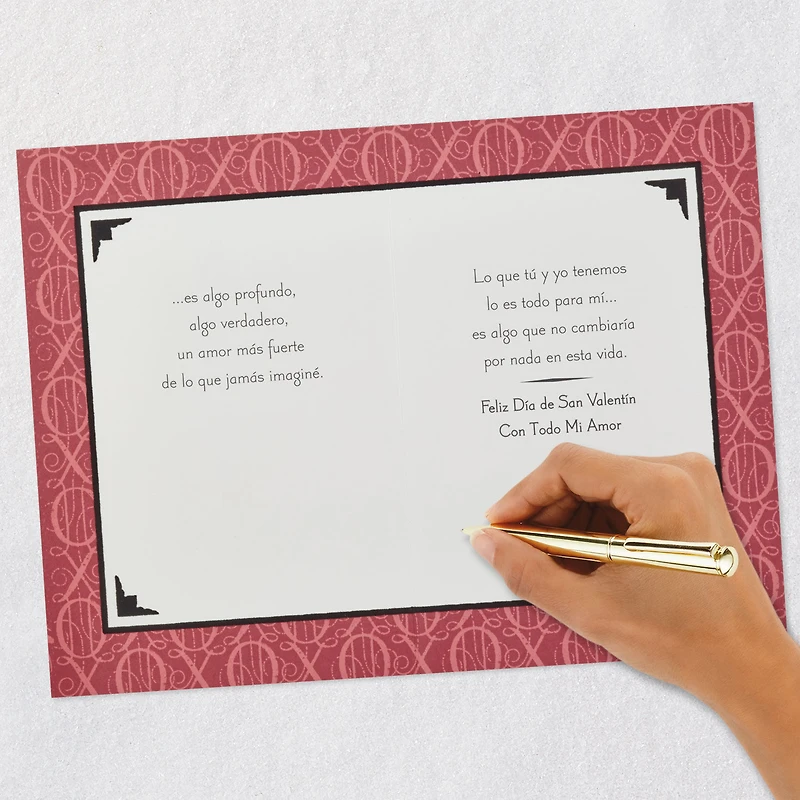 ...es algo profundo,
algo verdadero,
un amor más fuerte
de lo que jamás imaginé.
Lo que tú y yo tenemos
lo es todo para mí...
es algo que no cambiaría
por nada en esta vida.
Feliz Día de San Valentín
Con Todo Mi Amor